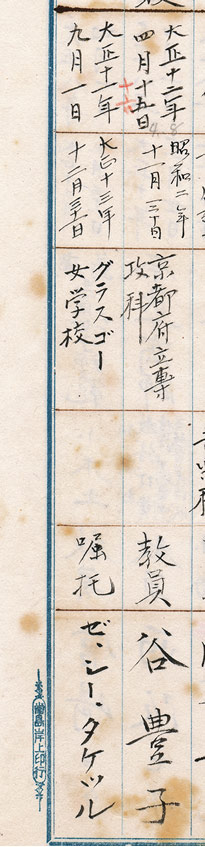 大正十二年
四月十五日
昭和二年
十一月三十日
京都府立専
攻科
教員
谷豊子
大正十一年
九月一日
大正十三年
十二月三十一日
グラスゴー
女学校
嘱托
ゼ、シー、タケツル
岸上印行